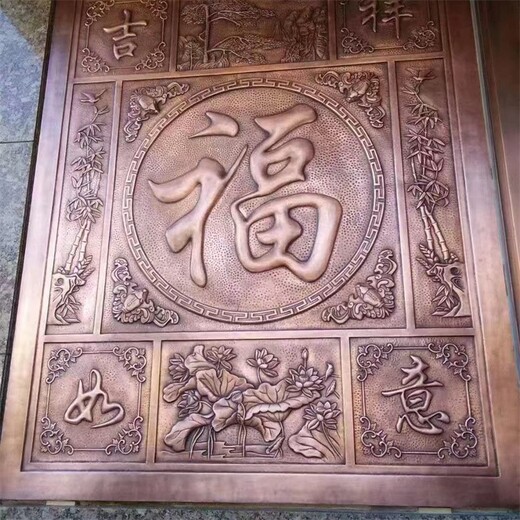 吉 祥
福
如 意